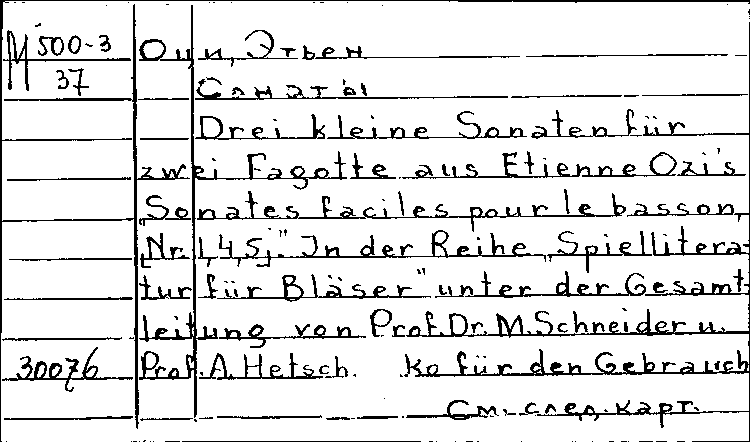 М 500-3 Оци, Этьен
37 Сонаты
Drei kleine Sonaten für
zwei Fagotte aus Etienne Ozi's
„Sonates faciles pour le basson,
„Nr. 1, 4, 5;" In der Reihe „Spiellitera-
tur für Bläser" unter der Gesamt-
leitung von Prof. Dr. M. Schneider u.
30076 Prof. A. Hetsch. Ko für den Gebrauch
См. след. карт.